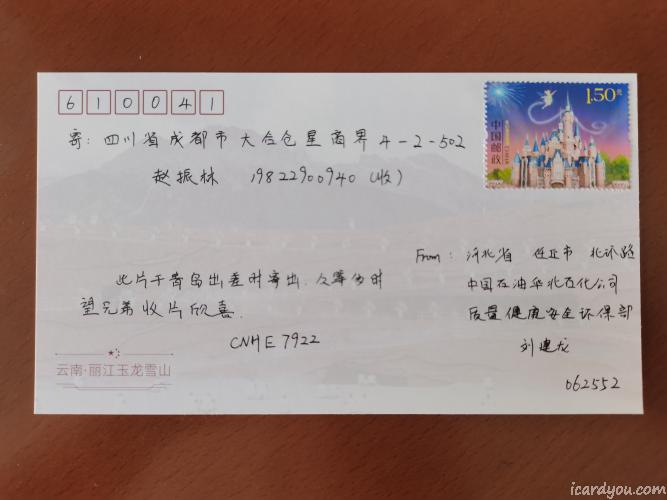 610041
1.50元
中国邮政
CHINA
寄:四川省成都市大合仓星商界4-2-502
赵振林 19822900940(收)
From: 河北省 任丘市 北环路
中国石油华北石化公司
质量健康安全环保部
刘建龙
062552
此片于青岛出差时寄出,
望兄弟收片欣喜.
CNHE7922
云南·丽江玉龙雪山
icardyou.com